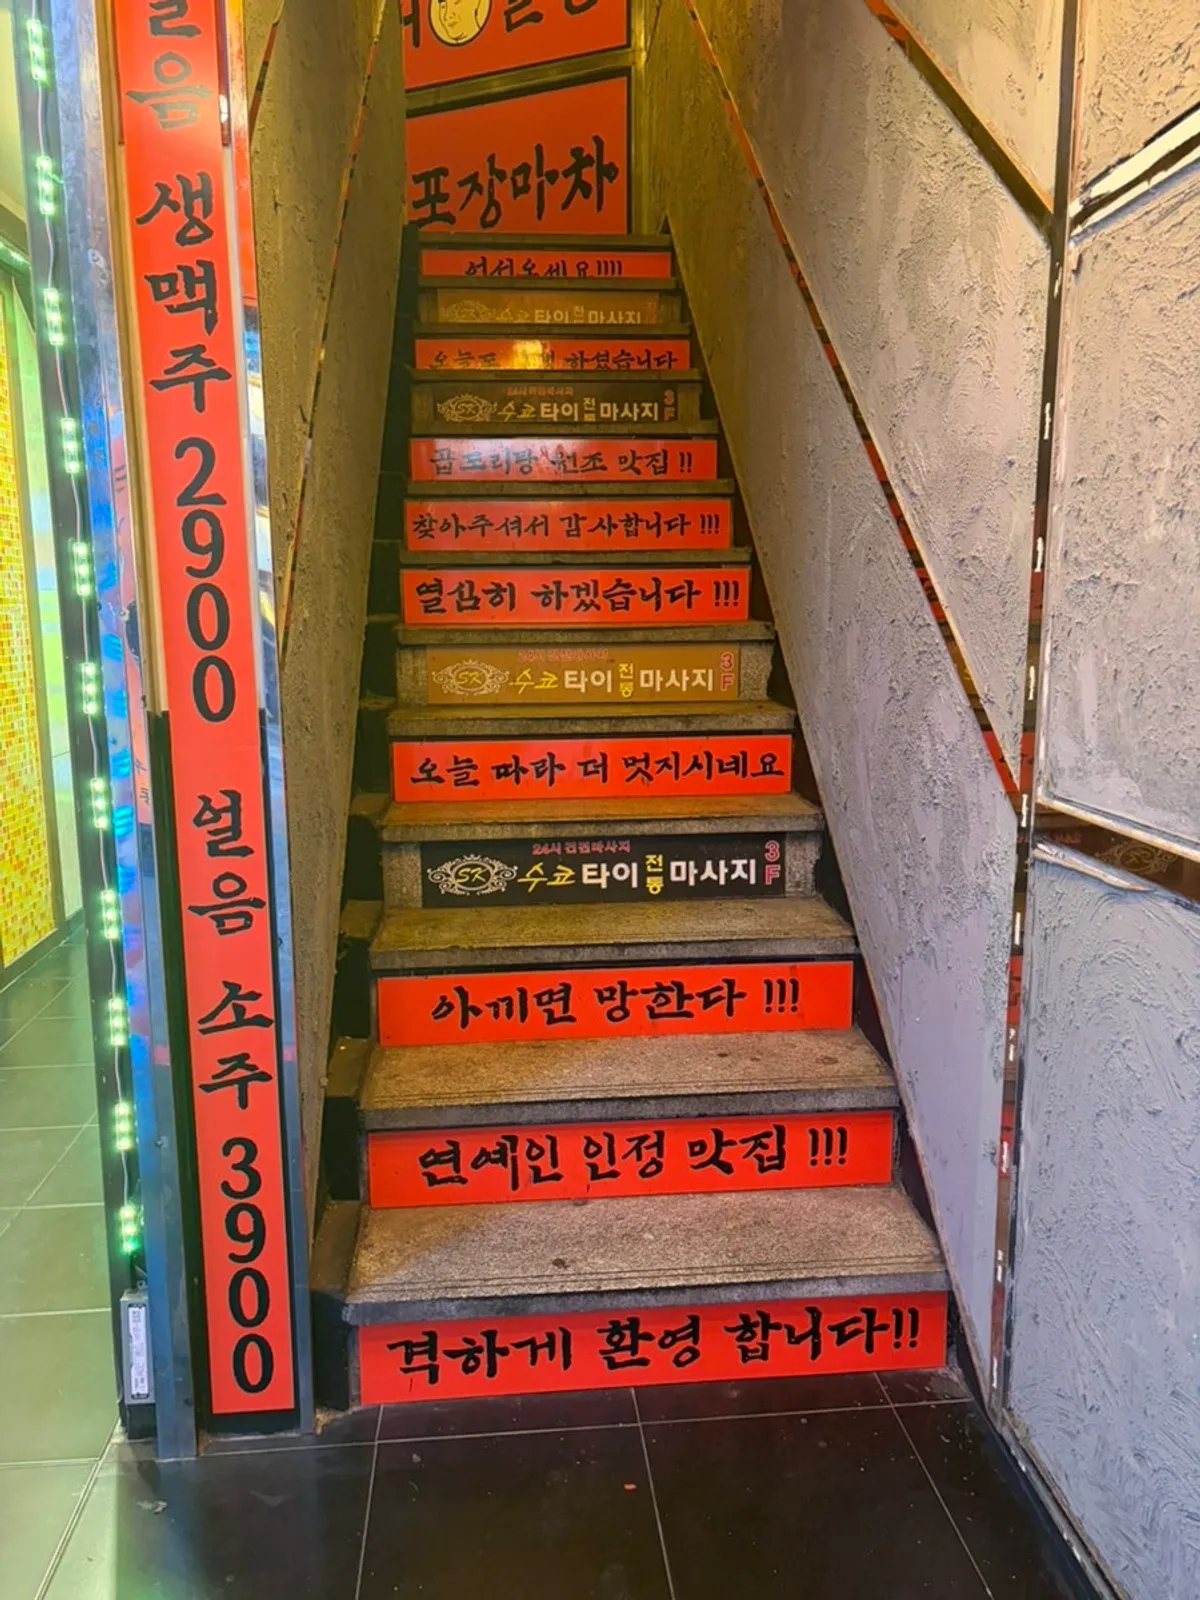 얼음 생맥주 2900 얼음 소주 3900
포장마차
어서오세요!!!!
타이 전동 마사지
오늘도 하셨습니다
24시 전신마사지
SK 수코 타이 전통 마사지 3F
곱도리탕 원조 맛집 !!
찾아주셔서 감사합니다 !!!
열심히 하겠습니다 !!!
24시 전신마사지
SK 수코 타이 전통 마사지 3F
오늘 따라 더 멋지시네요
24시 전신마사지
SK 수코 타이 전통 마사지 3F
아끼면 망한다 !!!
연예인 인정 맛집 !!!
격하게 환영 합니다!!